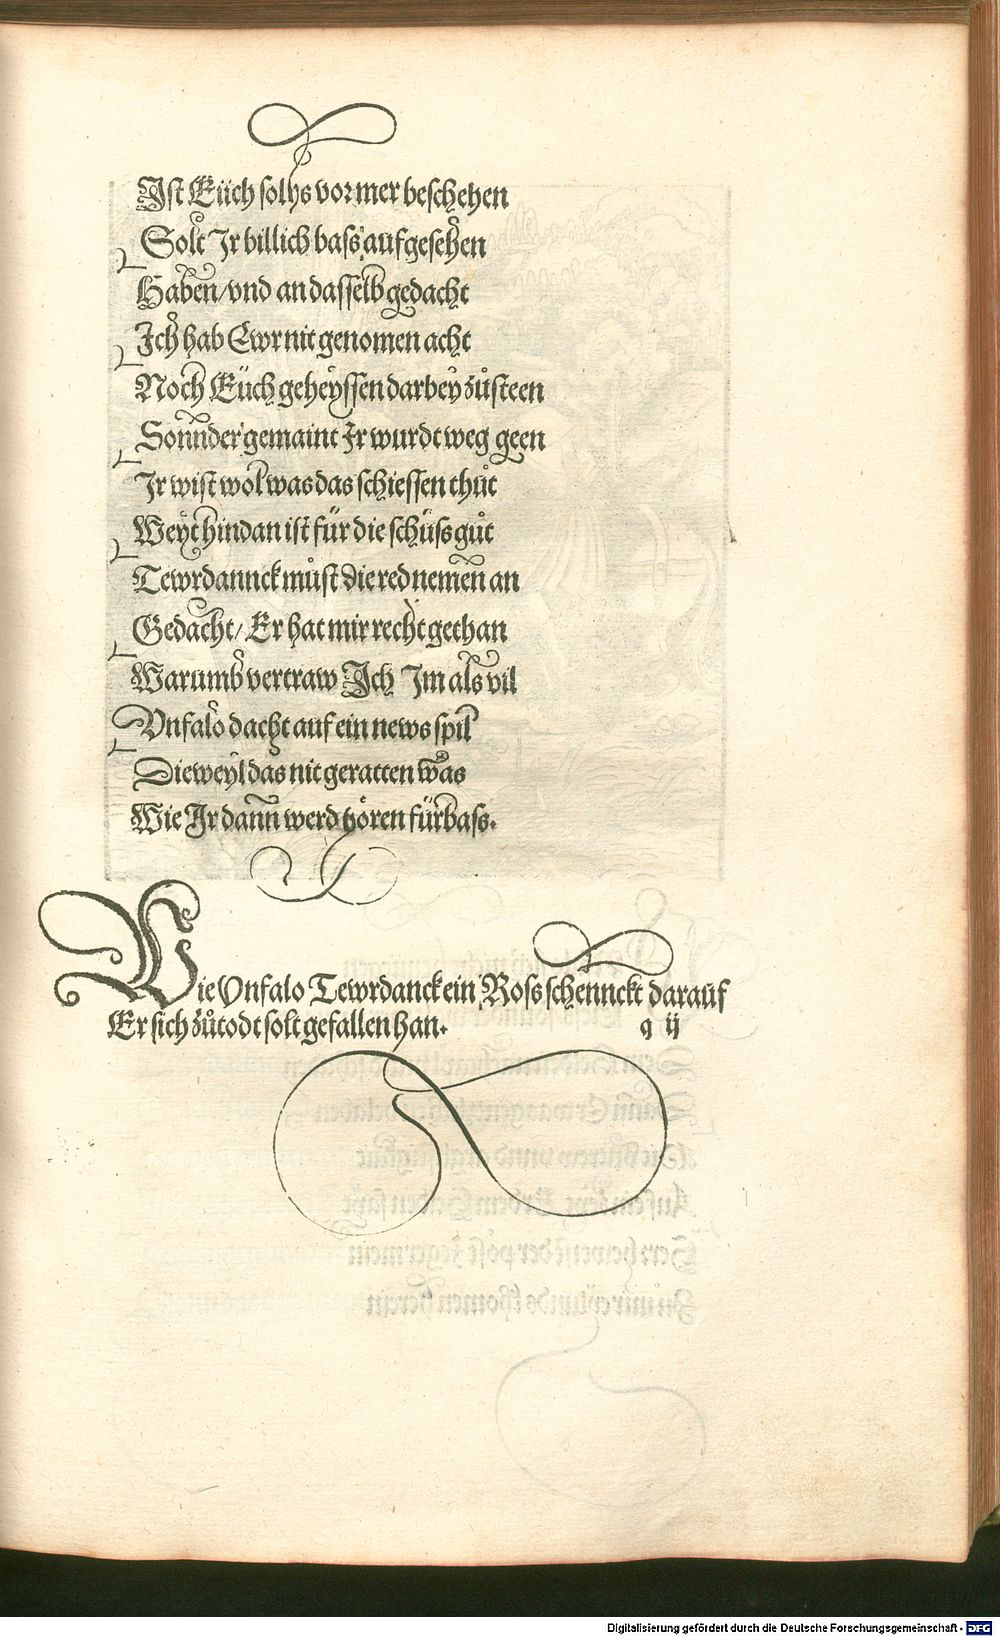 Ist Eüch solhs vor mer beschehen
Solt Ir billich bass aufgesehen
Haben/ vnd an dasselb gedacht
Ich hab Ewr nit genomen acht
Noch Eüch geheyssen darbey zůsteen
Sonnder gemaint Ir wurdt weg geen
Ir wist wol was das schiessen thůt
Weyt hindan ist für die schüss gůt
Tewrdannck můst die red nemen an
Gedacht/ Er hat mir recht gethan
Warumb vertraw Ich Im als vil
Vnfalo dacht auf ein news spil
Dieweyl das nit geratten was
Wie Ir dann werd hören fürbass.
Wie Vnfalo Tewrdanck ein Ross schennckt darauf
Er sich zůtodt solt gefallen han.
q ij
Digitalisierung gefördert durch die Deutsche Forschungsgemeinschaft - DFG